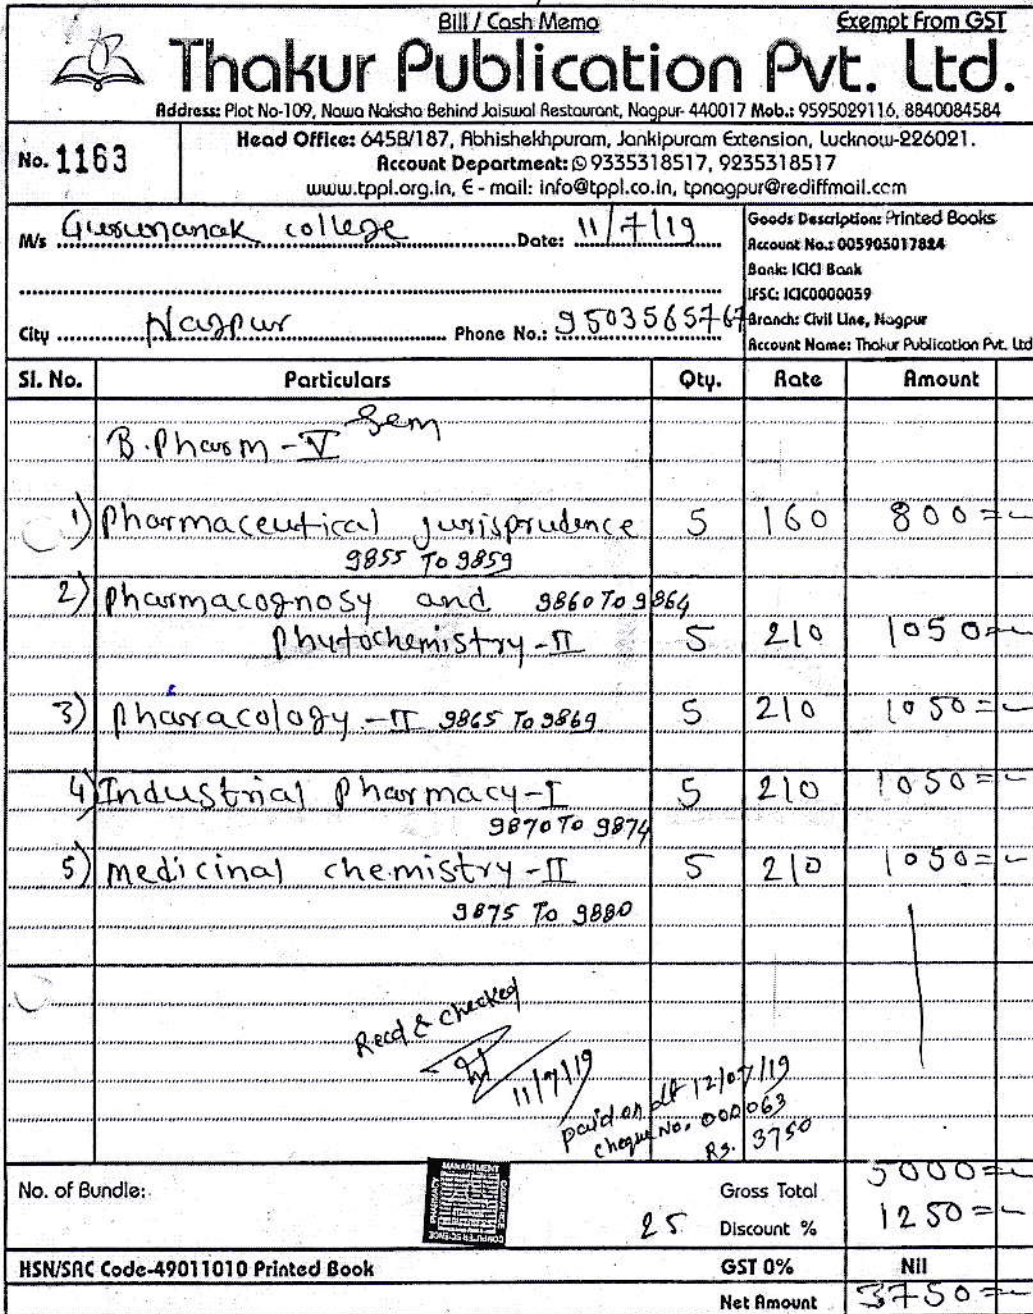 Bill / Cash Memo
Exempt From GST
Thakur Publication Pvt. Ltd.
Address: Plot No-109, Nawa Naksha Behind Jaiswal Restaurant, Nagpur- 440017 Mob.: 9595029116, 8840084584
No. 1163
Head Office: 645B/187, Abhishekhpuram, Jankipuram Extension, Lucknow-226021.
Account Department: 9335318517, 9235318517
www.tppl.org.in, E - mail: info@tppl.co.in, tpnagpur@rediffmail.com
M/s Gurunanak college Date: 11/7/19
City Nagpur Phone No.: 9503565767
Goods Description: Printed Books
Account No.: 005905017824
Bank: ICICI Bank
IFSC: ICIC0000059
Branch: Civil Line, Nagpur
Account Name: Thakur Publication Pvt. Ltd
Sl. No. Particulars Qty. Rate Amount
B.Pharm - V Sem
1) Pharmaceutical jurisprudence 5 160 800=
9855 To 9859
2) Pharmacognosy and 9860 To 9864
Phytochemistry-II 5 210 1050=
3) Pharacology-II 9865 To 9869 5 210 1050=
4) Industrial Pharmacy-I 5 210 1050=
9870 To 9874
5) medicinal chemistry-II 5 210 1050=
9875 To 9880
Recd & checked
11/7/19
paid on dt 12/07/19
cheque No. 000063
Rs. 3750
No. of Bundle:
MANAGEMENT
COMPUTER SCIENCE
Gross Total 5000=
25 Discount % 1250=
HSN/SAC Code-49011010 Printed Book GST 0% Nil
Net Amount 3750=